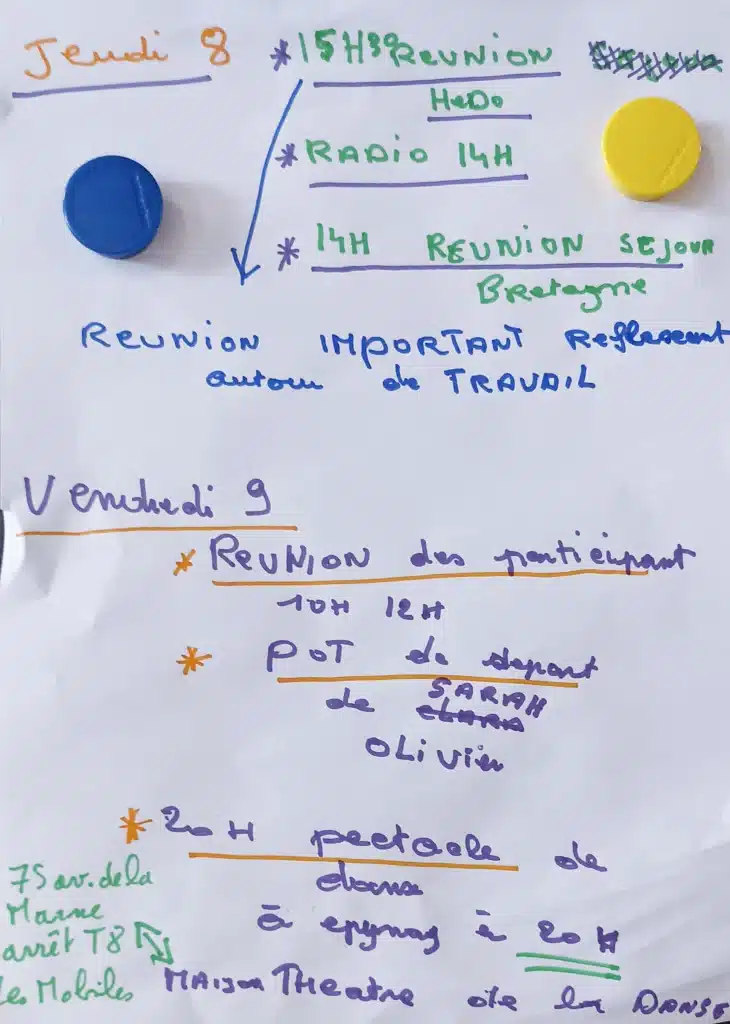 Jeudi 8
* 15H30 REUNION
HeDo
* RADIO 14H
* 14H REUNION SEJOUR
Bretagne
REUNION IMPORTANT
autou de TRAVAIL
Vendredi 9
* REUNION des participant
10H 12H
* POT de depart
de SARAH
OLiViER
* 20H pectacle de
danse
à epynay à 20H
75 av. de la
Marne
arrêt T8
Les Mobiles
MAison THeatre de la DANSE